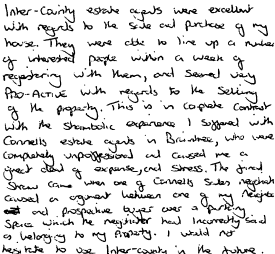 Inter-County estate agents were excellent
with regards to the sale and purchase of my
house. They were able to line up a number
of interested people within a week of
registering with them, and seemed very
Pro-Active with regards to the Selling
of the property. This is in complete contrast
with the shambolic experience I suffered with
Connells estate agents in Braintree, who were
completely unprofessional and caused me a
great deal of expense, and stress. The final
Straw came when one of Connells Sales negotiators
caused an argument between one of my neighbours
and prospective buyer over a parking
Space which the negotiator had incorrectly said
as belonging to my Property. I would not
hesitate to use Inter-county in the future.